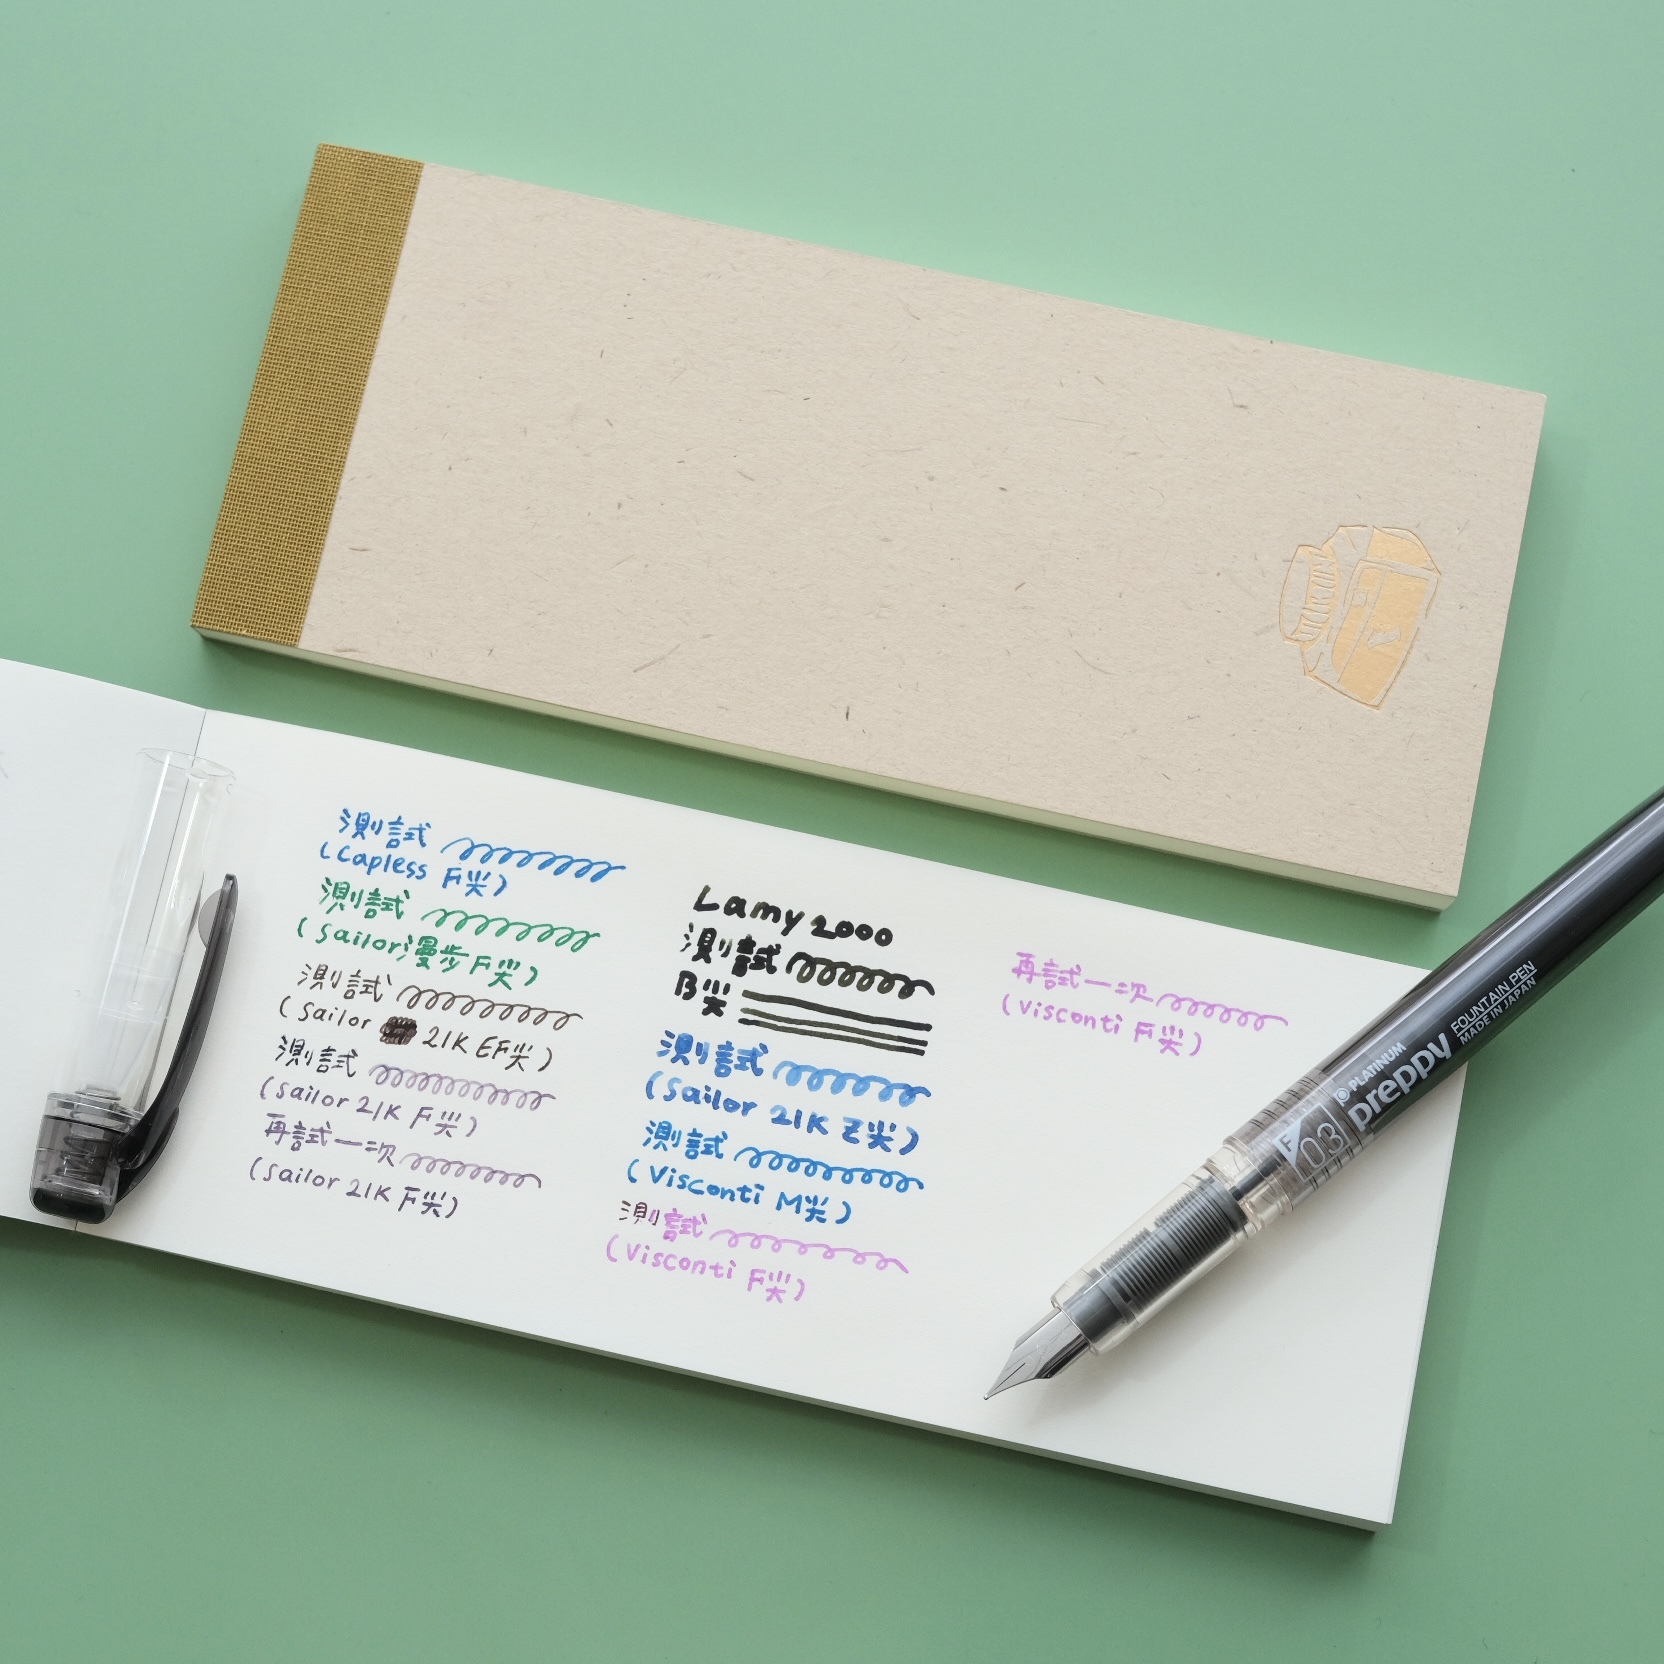 測試
(Capless F尖)
測試
(Sailor漫步F尖)
測試
(Sailor 21K EF尖)
測試
(Sailor 21K F尖)
再試一次
(Sailor 21K F尖)
Lamy 2000
測試
B尖
測試
(Sailor 21K Z尖)
測試
(Visconti M尖)
測試
(Visconti F尖)
再試一次
(Visconti F尖)
PLATINUM
preppy
FOUNTAIN PEN
MADE IN JAPAN
F
03